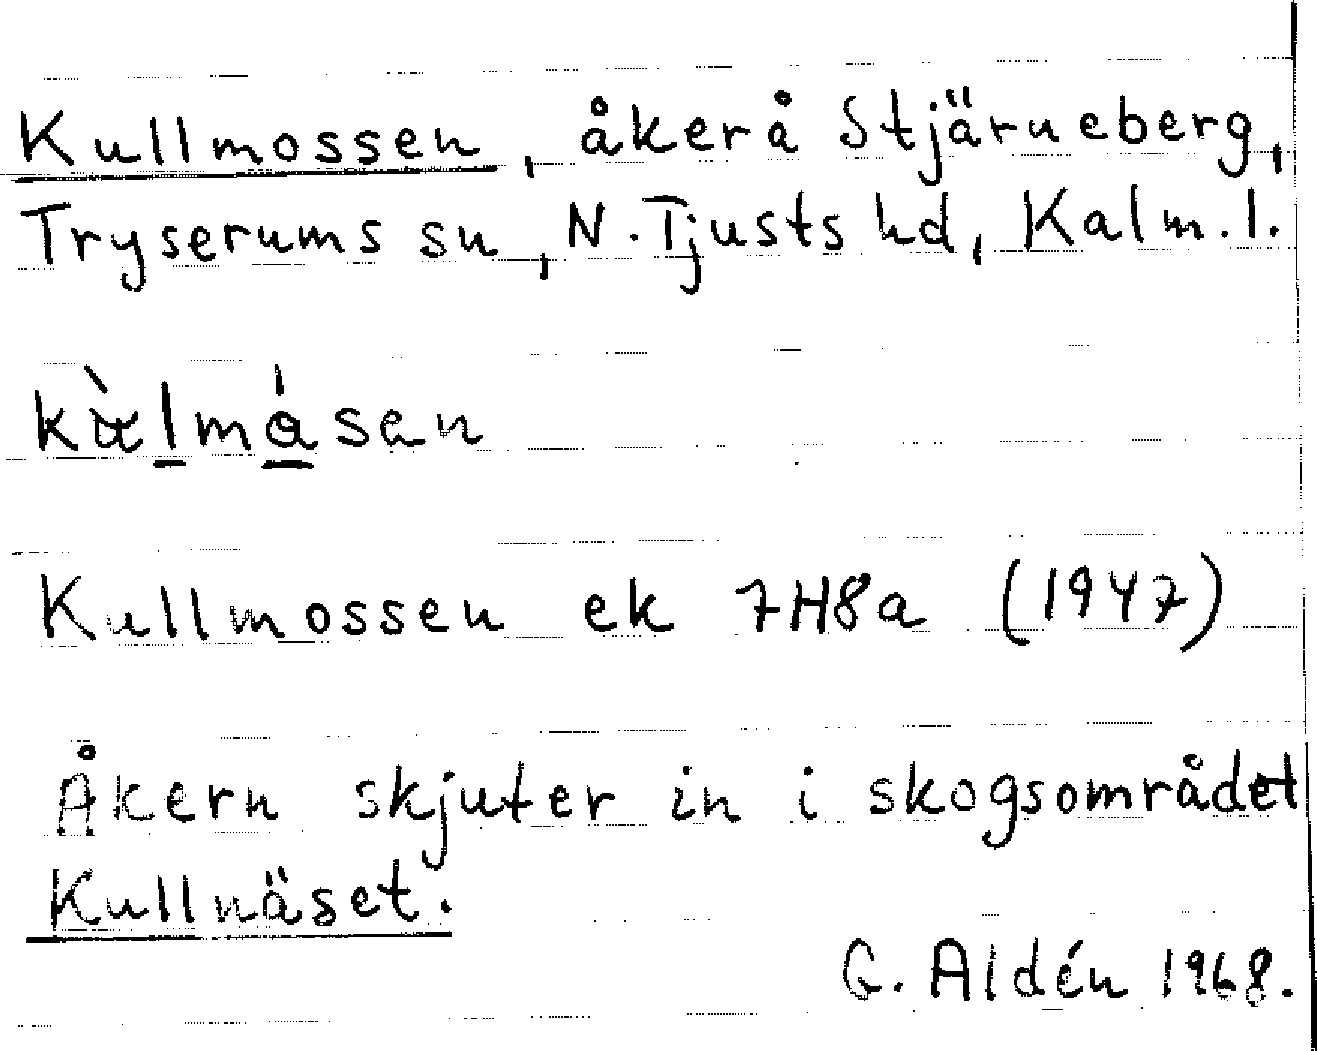 Kullmossen, åker å Stjärneberg,
Tryserums sn, N. Tjusts hd, Kalm. l.
Kullmossen ek 7H8a (1947)
Åkern skjuter in i skogsområdet
Kullnäset.
G. Aldén 1968.